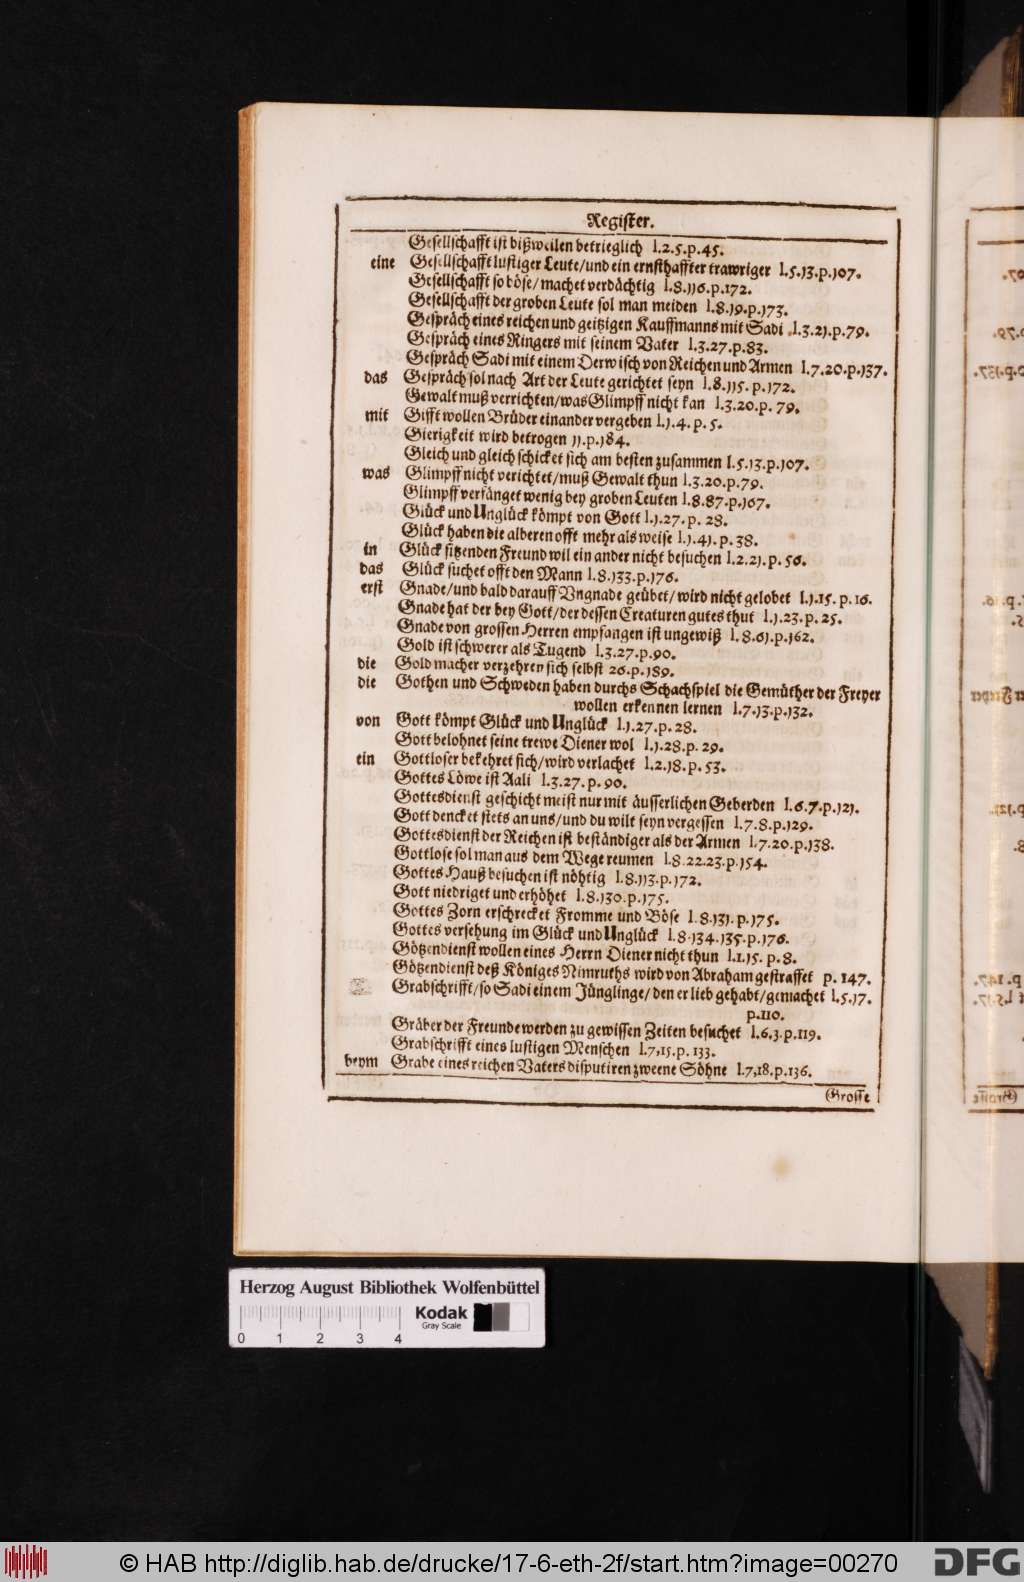 Register.
Gesellschafft ist bißweilen betrieglich l.2.5.p.45.
eine Gesellschafft lustiger Leute/und ein ernsthaffter trawriger l.5.13.p.107.
Gesellschafft so böse/machet verdächtig l.8.116.p.172.
Gesellschafft der groben Leute sol man meiden l.8.19.p.173.
Gespräch eines reichen und geitzigen Kauffmanns mit Sadi l.3.21.p.79.
Gespräch eines Ringers mit seinem Vater l.3.27.p.83.
Gespräch Sadi mit einem Derwisch von Reichen und Armen l.7.20.p.137.
das Gespräch sol nach Art der Leute gerichtet seyn l.8.115.p.172.
Gewalt muß verrichten/was Glimpff nicht kan l.3.20.p.79.
mit Gifft wollen Brüder einander vergeben l.1.4.p.5.
Gierigkeit wird betrogen 11.p.184.
Gleich und gleich schicket sich am besten zusammen l.5.13.p.107.
was Glimpff nicht verichtet/muß Gewalt thun l.3.20.p.79.
Glimpff verfänget wenig bey groben Leuten l.8.87.p.167.
Glück und Unglück kömpt von Gott l.1.27.p.28.
Glück haben die alberen offt mehr als weise l.1.41.p.38.
in Glück sitzenden Freund wil ein ander nicht besuchen l.2.21.p.56.
das Glück suchet offt den Mann l.8.133.p.176.
erst Gnade/und bald darauff Ungnade geübet/wird nicht gelobet l.1.15.p.16.
Gnade hat der bey Gott/der dessen Creaturen gutes thut l.1.23.p.25.
Gnade von grossen Herren empfangen ist ungewiß l.8.61.p.162.
Gold ist schwerer als Tugend l.3.27.p.90.
die Gold macher verzehren sich selbst 26.p.189.
die Gothen und Schweden haben durchs Schachspiel die Gemüther der Freyer
wollen erkennen lernen l.7.13.p.132.
von Gott kömpt Glück und Unglück l.1.27.p.28.
Gott belohnet seine trewe Diener wol l.1.28.p.29.
ein Gottloser bekehret sich/wird verlachet l.2.18.p.53.
Gottes Löwe ist Aali l.3.27.p.90.
Gottesdienst geschicht meist nur mit äusserlichen Geberden l.6.7.p.121.
Gott dencket stets an uns/und du wilt seyn vergessen l.7.8.p.129.
Gottesdienst der Reichen ist beständiger als der Armen l.7.20.p.138.
Gottlose sol man aus dem Wege reumen l.8.22.23.p.154.
Gottes Hauß besuchen ist nöhtig l.8.113.p.172.
Gott niedriget und erhöhet l.8.130.p.175.
Gottes Zorn erschrecket Fromme und Böse l.8.131.p.175.
Gottes versehung im Glück und Unglück l.8.134.135.p.176.
Götzendienst wollen eines Herrn Diener nicht thun l.1.15.p.8.
Götzendienst deß Königes Nimruths wird von Abraham gestraffet p.147.
Grabschrifft/so Sadi einem Jünglinge/den er lieb gehabt/gemachet l.5.17.
p.110.
Gräber der Freunde werden zu gewissen Zeiten besuchet l.6.3.p.119.
Grabschrifft eines lustigen Menschen l.7,15.p.133.
beym Grabe eines reichen Vaters disputiren zweene Söhne l.7,18.p.136.
Grosse
Herzog August Bibliothek Wolfenbüttel
0 1 2 3 4
Kodak
Gray Scale
© HAB http://diglib.hab.de/drucke/17-6-eth-2f/start.htm?image=00270
DFG